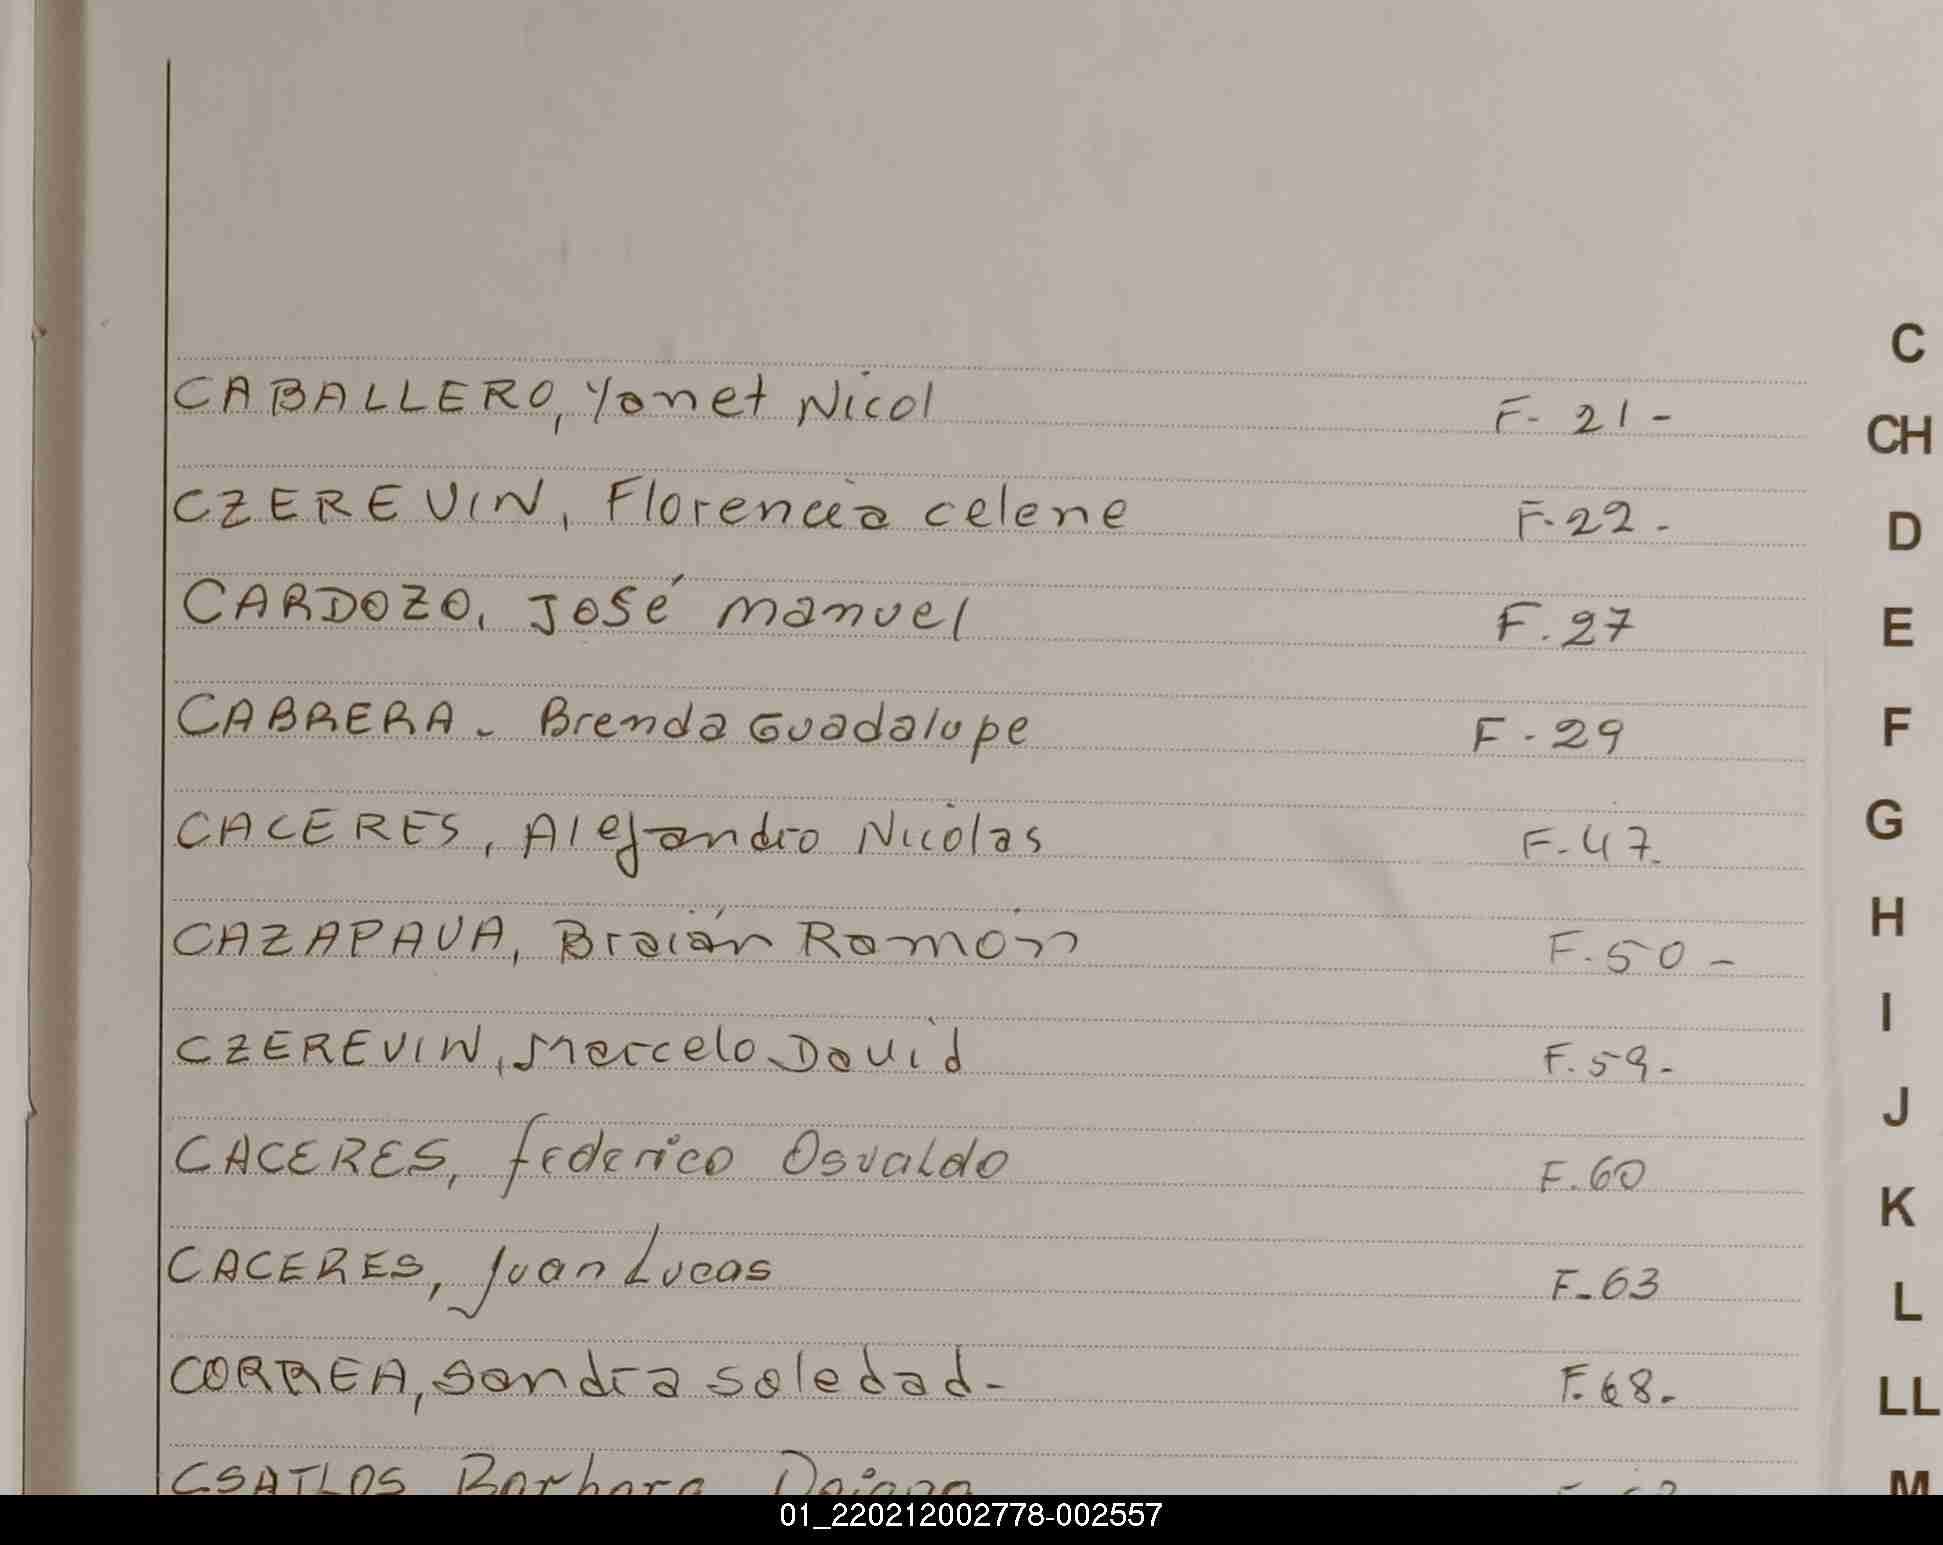 C
CABALLERO, Yanet Nicol F- 21-
CH
CZEREVIN, Florencia celene F.22.
D
CARDOZO, José manuel F.27
E
CABRERA. Brenda Guadalupe F.29
F
CACERES, Alejandro Nicolas F.47.
G
CAZAPAVA, Braián Ramón F.50-
H
I
CZEREVIN, Marcelo David F.59.
J
CACERES, federico Osvaldo F.60
K
CACERES, Juan Lucas F-63
L
CORREA, Sandra soledad- F.68.
LL
CSATLOS Barbara Daiana
M
01_220212002778-002557